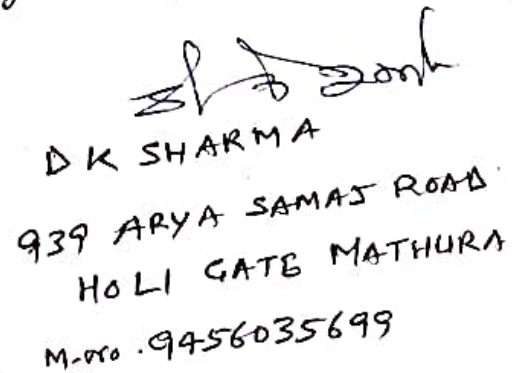 D K SHARMA
939 ARYA SAMAJ ROAD
HOLI GATE MATHURA
M-no. 9456035699